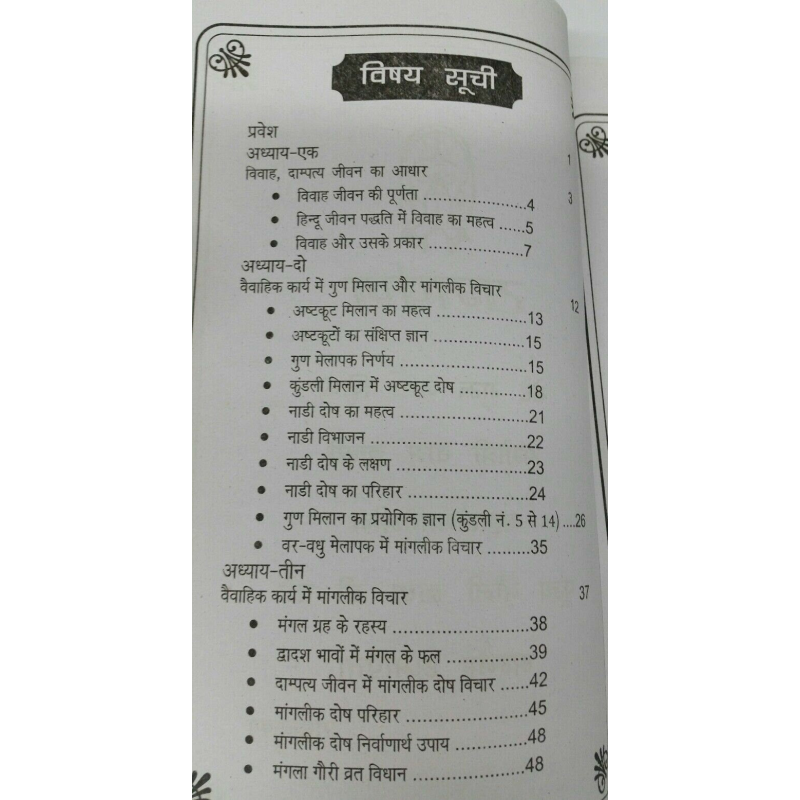 विषय सूची
प्रवेश 1
अध्याय-एक
विवाह, दाम्पत्य जीवन का आधार 3
• विवाह जीवन की पूर्णता ........................4
• हिन्दू जीवन पद्धति में विवाह का महत्व ......5
• विवाह और उसके प्रकार ......................7
अध्याय-दो
वैवाहिक कार्य में गुण मिलान और मांगलीक विचार 12
• अष्टकूट मिलान का महत्व .....................13
• अष्टकूटों का संक्षिप्त ज्ञान .....................15
• गुण मेलापक निर्णय .............................15
• कुंडली मिलान में अष्टकूट दोष ...............18
• नाडी दोष का महत्व .............................21
• नाडी विभाजन ....................................22
• नाडी दोष के लक्षण ..............................23
• नाडी दोष का परिहार ...........................24
• गुण मिलान का प्रयोगिक ज्ञान (कुंडली नं. 5 से 14) ....26
• वर-वधु मेलापक में मांगलीक विचार .........35
अध्याय-तीन
वैवाहिक कार्य में मांगलीक विचार 37
• मंगल ग्रह के रहस्य .............................38
• द्वादश भावों में मंगल के फल .................39
• दाम्पत्य जीवन में मांगलीक दोष विचार ......42
• मांगलीक दोष परिहार ...........................45
• मांगलीक दोष निर्वाणार्थ उपाय ................48
• मंगला गौरी व्रत विधान .........................48